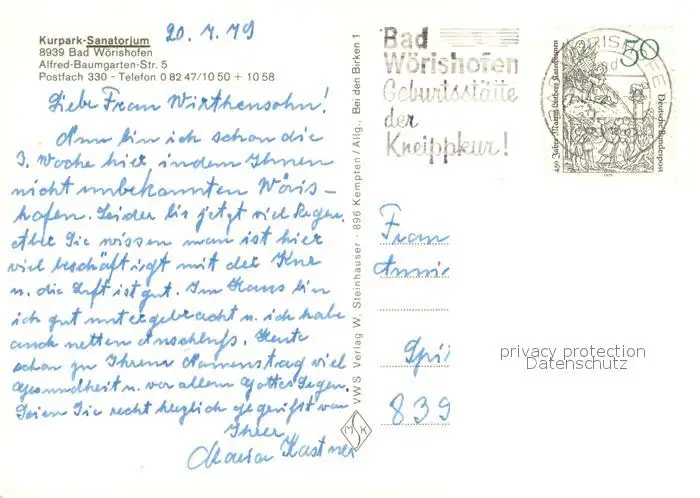 Kurpark-Sanatorium
8939 Bad Wörishofen
Alfred-Baumgarten-Str. 5
Postfach 330 – Telefon 0 82 47/10 50 + 10 58
20. 7. 79
Liebe Frau Wirthensohn!
Nun bin ich schon die
3. Woche hier in dem Ihnen
nicht unbekannten Wöris-
hofen. Leider bis jetzt viel Regen.
Aber Sie wissen man ist hier
viel beschäftigt mit der Kur
u. die Luft ist gut. Im Haus bin
ich gut untergebracht u. ich habe
auch netten Anschluß. Heute
schon zu Ihrem Namenstag viel
Gesundheit u. vor allem Gottes Segen.
Seien Sie recht herzlich gegrüßt von
Ihrer
Maria Kastner
VWS Verlag W. Steinhauser · 896 Kempten / Allg., Bei den Birken 1
Bad
Wörishofen
Geburtsstätte
der
Kneippkur!
50
Deutsche Bundespost
Frau
Anni
839
privacy protection
Datenschutz